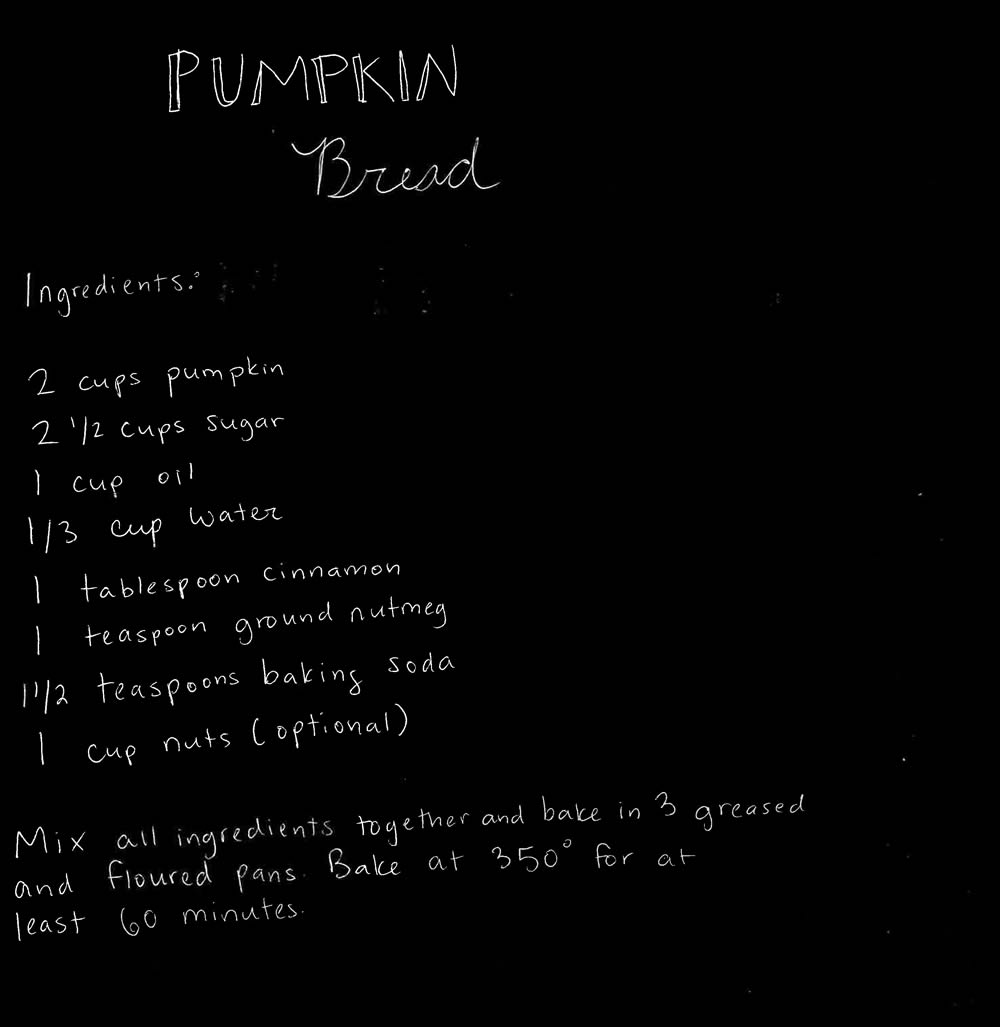 PUMPKIN
Bread
Ingredients:
2 cups pumpkin
2 1/2 cups sugar
1 cup oil
1/3 cup water
1 tablespoon cinnamon
1 teaspoon ground nutmeg
1 1/2 teaspoons baking soda
1 cup nuts (optional)
Mix all ingredients together and bake in 3 greased
and floured pans. Bake at 350° for at
least 60 minutes.